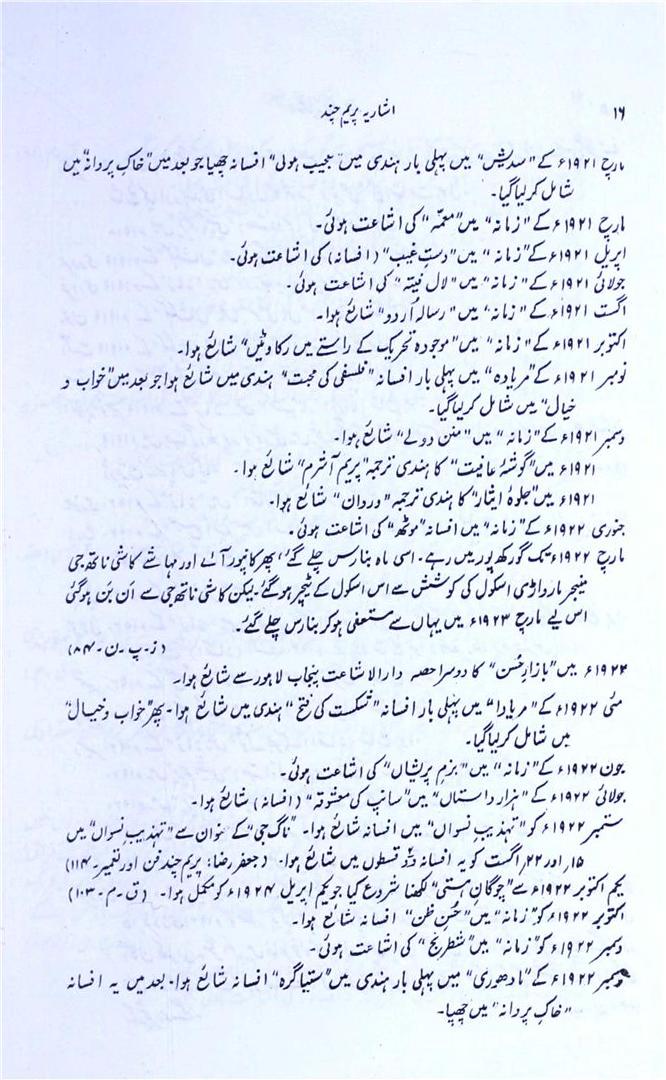 ۱۶
اشاریہ پریم چند
مارچ ۱۹۲۱ء کے "سدیش" میں پہلی بار ہندی میں "عجیب ہولی" افسانہ چھپا جو بعد میں "خاکِ پروانہ" میں
شامل کر لیا گیا۔
مارچ ۱۹۲۱ء کے "زمانہ" میں "معمّہ" کی اشاعت ہوئی۔
اپریل ۱۹۲۱ء کے "زمانہ" میں "دستِ غیب" (افسانہ) کی اشاعت ہوئی۔
جولائی ۱۹۲۱ء کے "زمانہ" میں "لال فیتہ" کی اشاعت ہوئی۔
اگست ۱۹۲۱ء کے "زمانہ" میں "رسالہ اُردو" شائع ہوا۔
اکتوبر ۱۹۲۱ء کے "زمانہ" میں "موجودہ تحریک کے راستے میں رکاوٹیں" شائع ہوا۔
نومبر ۱۹۲۱ء کے "مریادہ" میں پہلی بار افسانہ "فلسفی کی محبت" ہندی میں شائع ہوا جو بعد میں "خواب و
خیال" میں شامل کر لیا گیا۔
دسمبر ۱۹۲۱ء کے "زمانہ" میں "منن دولے" شائع ہوا۔
۱۹۲۱ء میں "گوشۂ عافیت" کا ہندی ترجمہ "پریم آشرم" شائع ہوا۔
۱۹۲۱ء میں "جلوۂ ایثار" کا ہندی ترجمہ "وردان" شائع ہوا۔
جنوری ۱۹۲۲ء کے "زمانہ" میں افسانہ "موٹھ" کی اشاعت ہوئی۔
مارچ ۱۹۲۲ء تک گورکھپور میں رہے۔ اسی ماہ بنارس چلے گئے، پھر کانپور آئے اور مہاشے کاشی ناتھ جی
منیجر مارواڑی اسکول کی کوشش سے اس اسکول کے ٹیچر ہو گئے۔ لیکن کاشی ناتھ جی سے اَن بَن ہو گئی
اس لیے مارچ ۱۹۲۳ء میں یہاں سے مستعفی ہو کر بنارس چلے گئے۔
(ز۔پ۔ن۔۸۴)
۱۹۲۲ء میں "بازارِ حُسن" کا دوسرا حصہ دارالاشاعت پنجاب لاہور سے شائع ہوا۔
مئی ۱۹۲۲ء کے "مریادا" میں پہلی بار افسانہ "شکست کی فتح" ہندی میں شائع ہوا۔ پھر "خواب و خیال"
میں شامل کر لیا گیا۔
جون ۱۹۲۲ء کے "زمانہ" میں "بزمِ پریشاں" کی اشاعت ہوئی۔
جولائی ۱۹۲۲ء کے "ہزار داستاں" میں "سانپ کی معشوقہ" (افسانہ) شائع ہوا۔
ستمبر ۱۹۲۲ء کو "تہذیبِ نسواں" میں افسانہ شائع ہوا۔ "ناگ جی" کے عنوان سے "تہذیبِ نسواں" میں
۱۵، اور ۲۲، اگست کو یہ افسانہ دو قسطوں میں شائع ہوا۔ (جعفر رضا: پریم چند فن اور تعمیر۔ ۱۱۴)
یکم اکتوبر ۱۹۲۲ء سے "چوگانِ ہستی" لکھنا شروع کیا جو یکم اپریل ۱۹۲۴ء کو مکمل ہوا۔ (ق۔م۔۱۰۳)
اکتوبر ۱۹۲۲ء کو "زمانہ" میں "حُسنِ ظن" افسانہ شائع ہوا۔
دسمبر ۱۹۲۲ء کو "زمانہ" میں "شطرنج" کی اشاعت ہوئی۔
دسمبر ۱۹۲۲ء کے "مادھوری" میں پہلی بار ہندی میں "ستیاگرہ" افسانہ شائع ہوا۔ بعد میں یہ افسانہ
"خاکِ پروانہ" میں چھپا۔